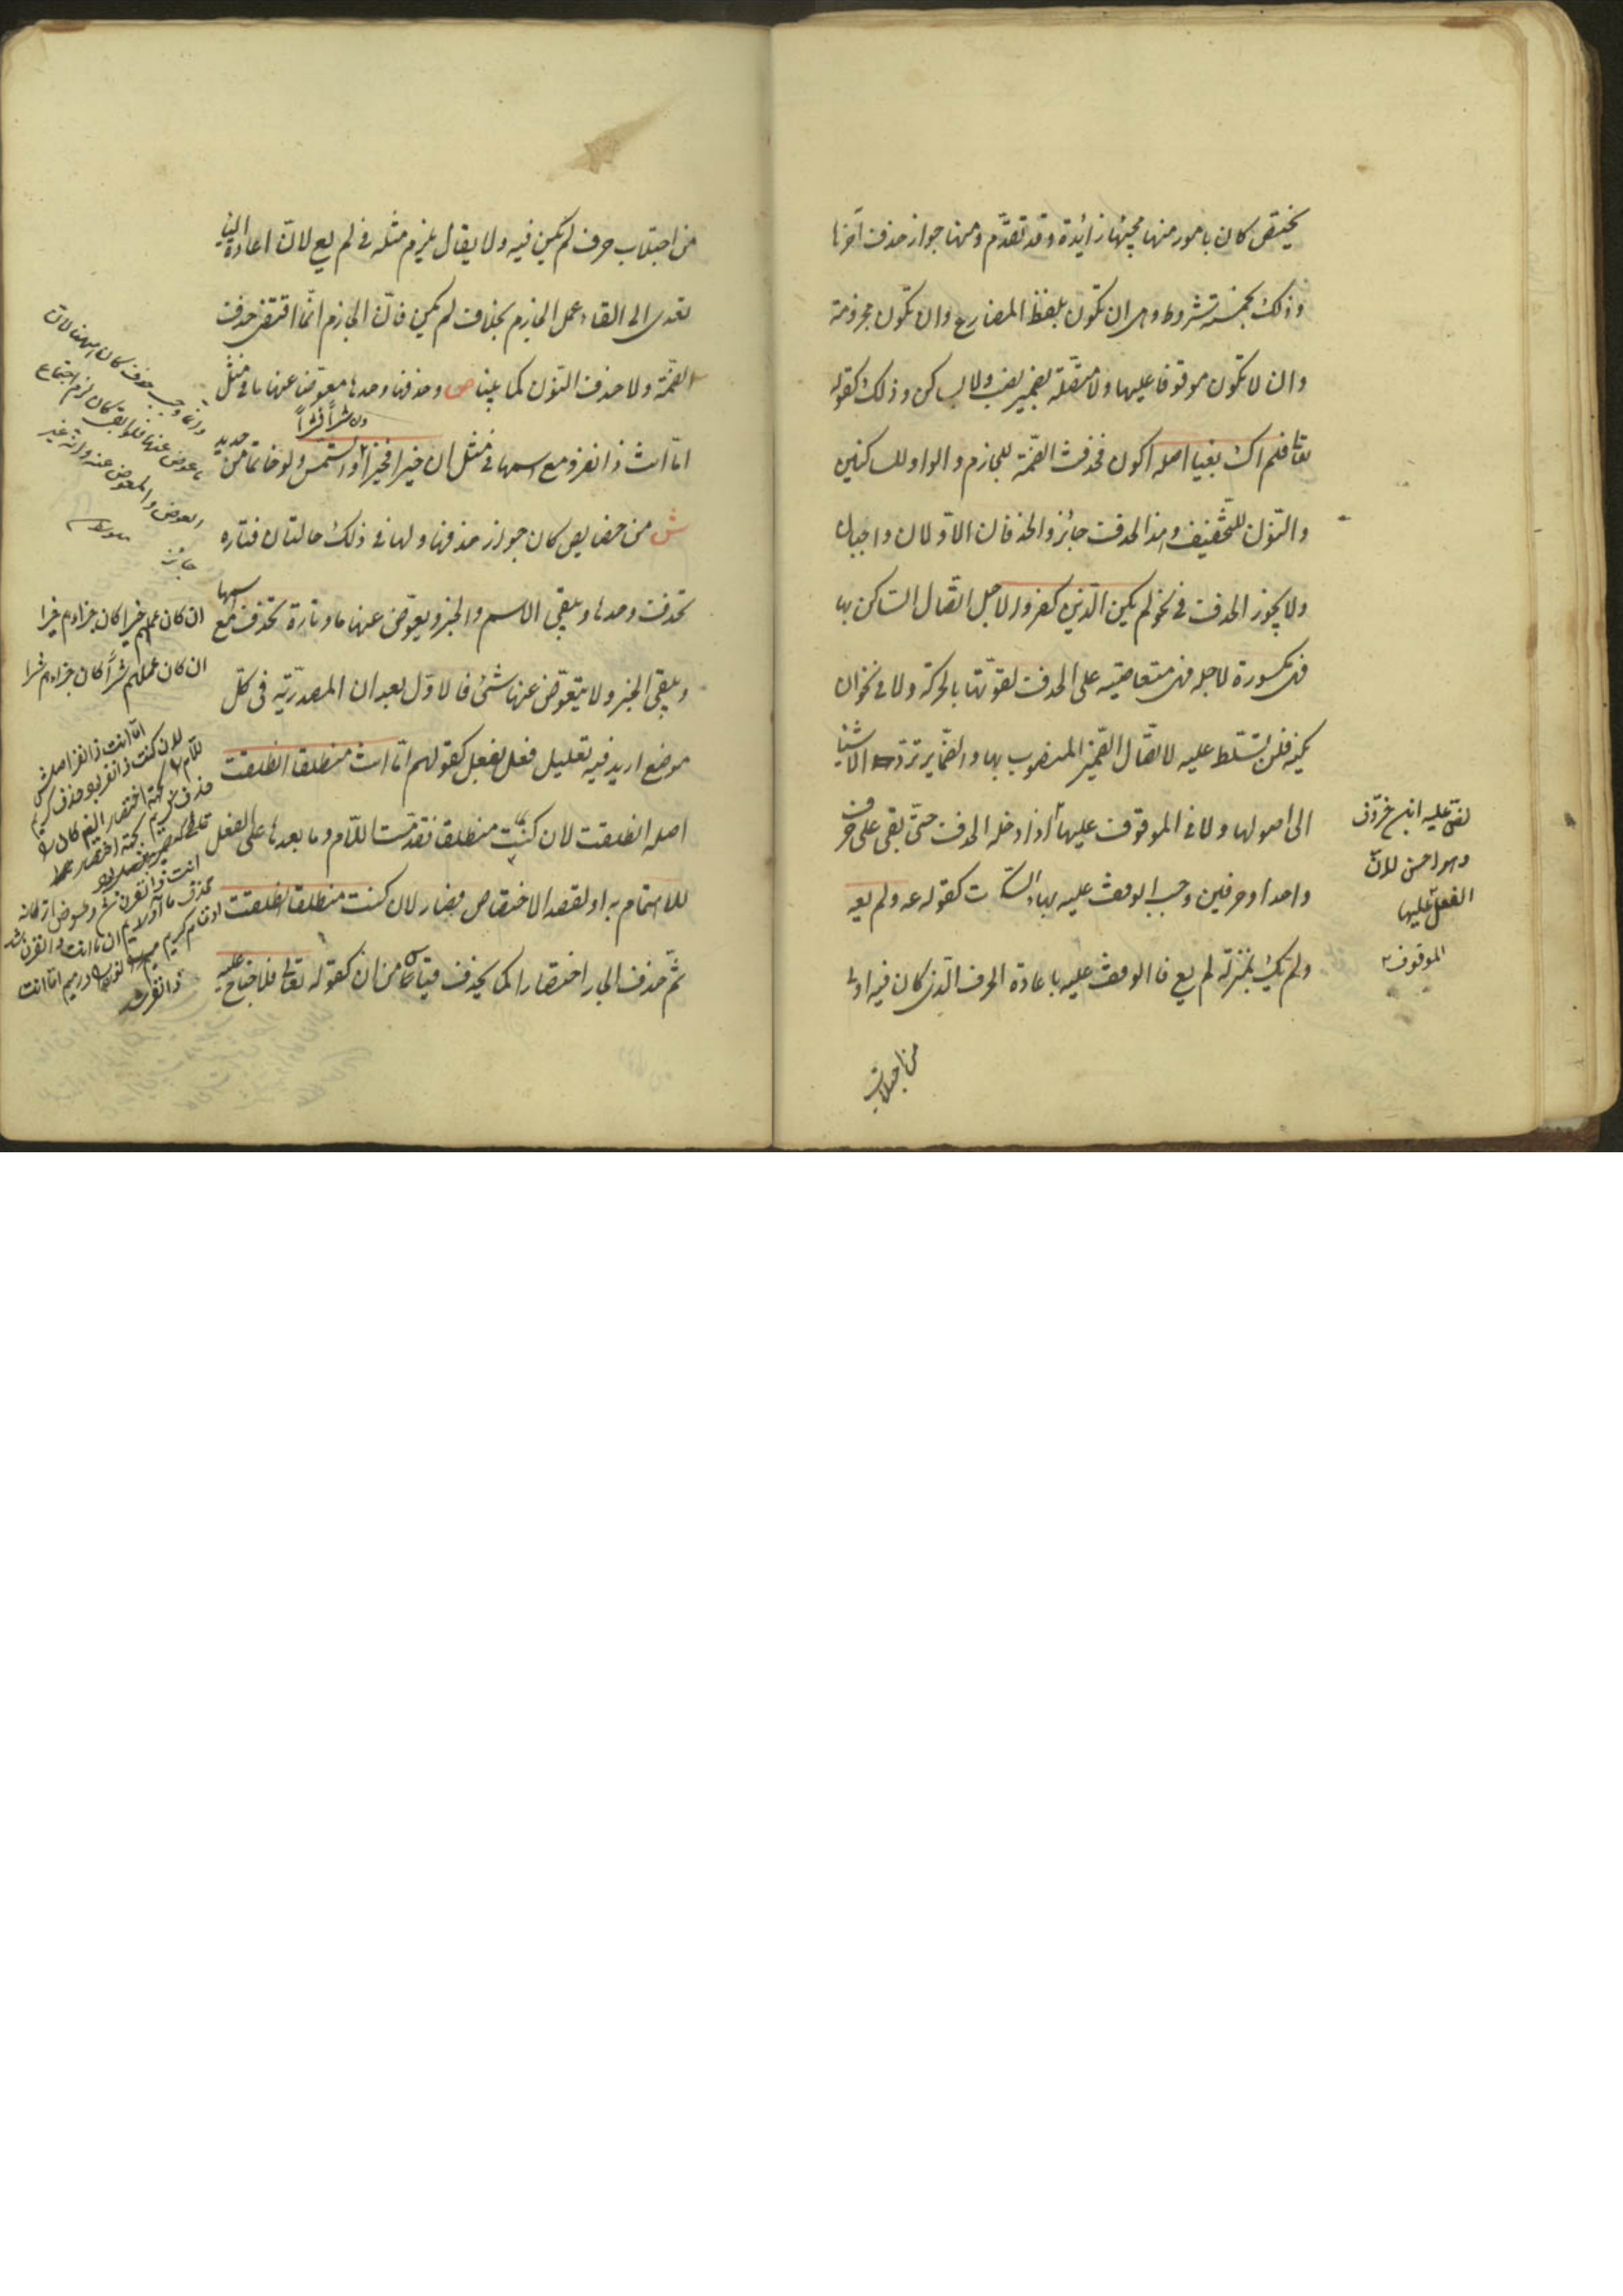 يختص كان بامور منها مجيئها زائدة وقد تقدّم ومنها جواز حذف آخرها
وذلك بخمسة شروط وهى ان تكون بلفظ المضارع وان تكون مجزومة
وان لا تكون موقوفا عليها ولا متصلة بضمير نصب ولا بساكن وذلك كقوله
تعا فلم اك بغيا اصله اكون فحذفت الضمّة للجازم والواو للساكنين
والنّون للتّخفيف وهذا الحذف جائز والحذفان الاوّلان واجبان
ولا يجوز الحذف فى نحو لم يكن الّذين كفروا لاجل اتّصال السّاكن بها
فهى مكسورة لاجله فهى متعاصية على الحذف لقوّتها بالحركة ولا فى نحو ان
يكنه فلن تسلّط عليه لاتّصال الضّمير المنصوب بها والضّماير تردّ الاشيا
الى اصولها ولا فى الموقوف عليها اذا دخله الحذف حتّى بقى على حرف
واحد او حرفين وجب الوقف عليه بهاء السّكت كقوله عه ولم يعه
ولم يك بمنزلة لم يع فالوقف عليه باعادة الحرف الّذى كان فيه اولى
من اجتلاب
نصّ عليه ابن خروف
وهو احسن لانّ
الفعل
الموقوف
من اجتلاب حرف لم يكن فيه ولا يقال يلزم مثله فى لم يع لانّ اعادة اليا
تعدى الى القاء عمل الجازم بخلاف لم يكن فانّ الجازم انّما اقتضى حذف
الضمّة ولا حذف النّون كما بينا ص وحذفها وحدها معوّضا عنها ما فى مثل
امّا انت ذا نفر ومع اسمها فى مثل ان خيرا فخير والتمس ولو خاتما من حديد
وان شرّاً فشرّاً
ش من خصايص كان جواز حذفها ولها فى ذلك حالتان فتارة
تحذف وحدها ويبقى الاسم والخبر ويعوّض عنها ما وتارة تحذف مع اسمها
ويبقى الخبر ولا يتعوّض عنها شئ فالاوّل بعد ان المصدريّة فى كلّ
موضع اريد فيه تعليل فعل بفعل كقولهم امّا انت منطلقا انطلقت
اصله انطلقت لان كنت منطلقا تقدّمت اللّام وما بعدها على الفعل
للاهتمام به او لقصد الاختصاص فصار لان كنت منطلقا انطلقت
ثمّ حذف الجار اختصارا كما يحذف قياسا من ان كقوله تعالى فلا جناح عليه
وانّما وجب حذف كان ههنا لانّ
ما عوض عنها فلو ابقى كان لزم اجتماع
العوض والمعوض عنه وانّه غير
جائز
ان كان عملهم خيرا كان جزاءهم خيرا
ان كان عملهم شرّاً كان جزاءهم شرا
امّا انت ذا نفر اصلش
لان كنت ذا نفر بود